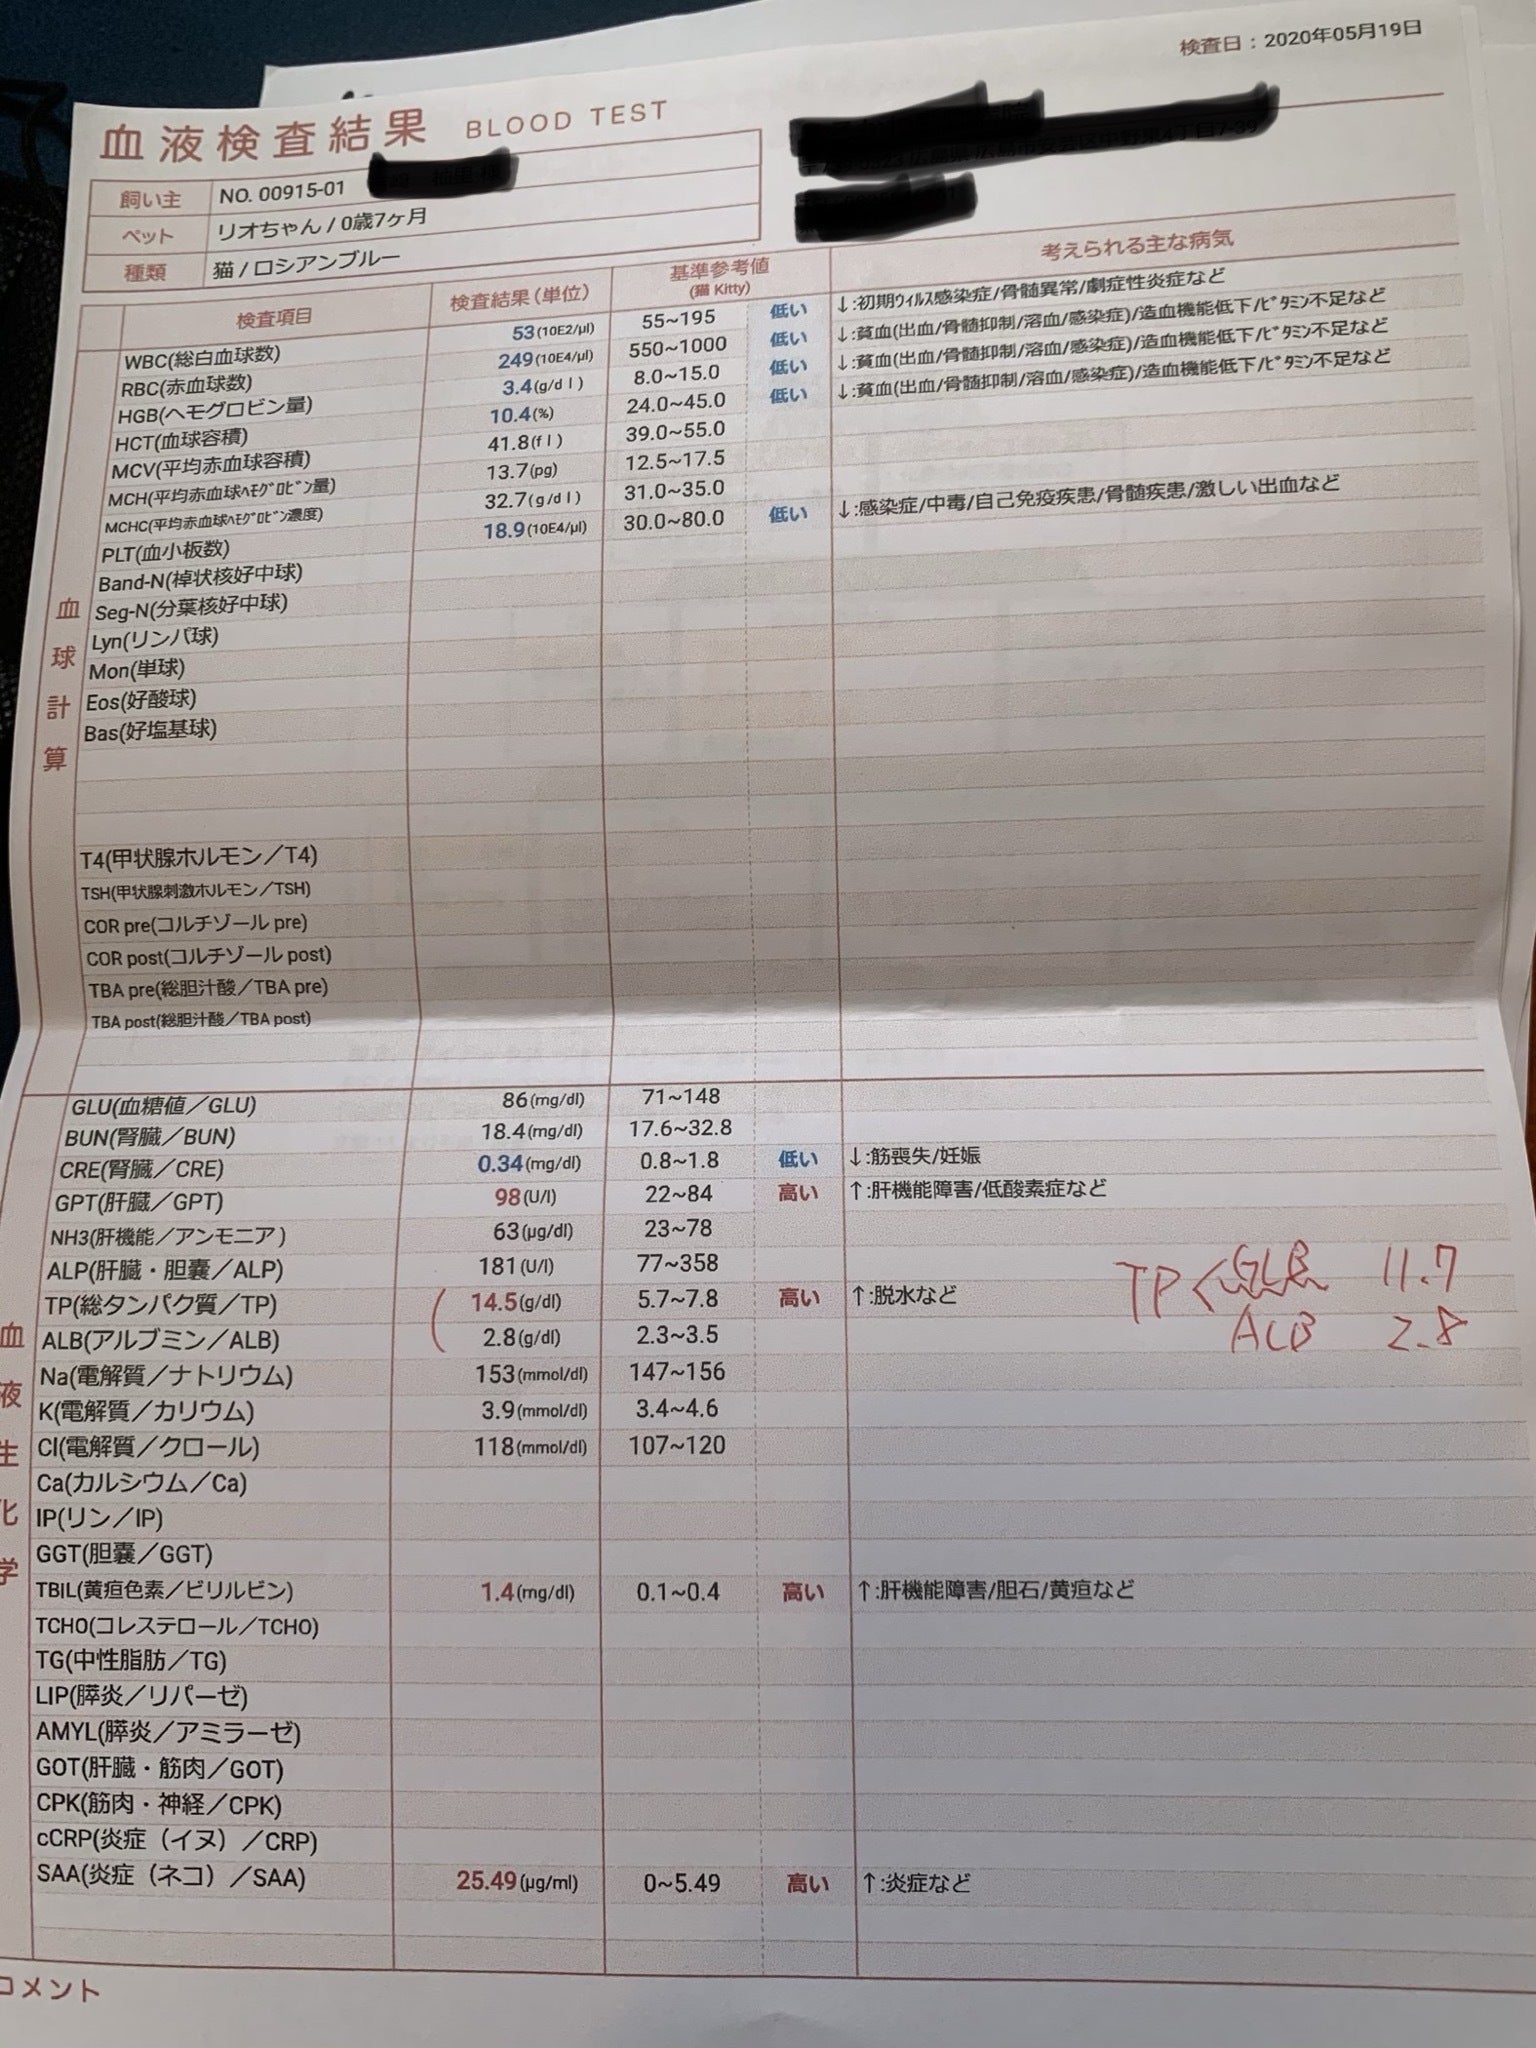 検査日：2020年05月19日
血液検査結果 BLOOD TEST
飼い主 NO. 00915-01
ペット リオちゃん / 0歳7ヶ月
種類 猫 / ロシアンブルー
検査項目 検査結果(単位) 基準参考値 (猫 Kitty) 考えられる主な病気
血球計算
WBC(総白血球数) 53(10E2/μl) 55~195 低い ↓:初期ウィルス感染症/骨髄異常/劇症性炎症など
RBC(赤血球数) 249(10E4/μl) 550~1000 低い ↓:貧血(出血/骨髄抑制/溶血/感染症)/造血機能低下/ビタミン不足など
HGB(ヘモグロビン量) 3.4(g/dl) 8.0~15.0 低い ↓:貧血(出血/骨髄抑制/溶血/感染症)/造血機能低下/ビタミン不足など
HCT(血球容積) 10.4(%) 24.0~45.0 低い ↓:貧血(出血/骨髄抑制/溶血/感染症)/造血機能低下/ビタミン不足など
MCV(平均赤血球容積) 41.8(fl) 39.0~55.0
MCH(平均赤血球ヘモグロビン量) 13.7(pg) 12.5~17.5
MCHC(平均赤血球ヘモグロビン濃度) 32.7(g/dl) 31.0~35.0
PLT(血小板数) 18.9(10E4/μl) 30.0~80.0 低い ↓:感染症/中毒/自己免疫疾患/骨髄疾患/激しい出血など
Band-N(棹状核好中球)
Seg-N(分葉核好中球)
Lyn(リンパ球)
Mon(単球)
Eos(好酸球)
Bas(好塩基球)
T4(甲状腺ホルモン／T4)
TSH(甲状腺刺激ホルモン／TSH)
COR pre(コルチゾール pre)
COR post(コルチゾール post)
TBA pre(総胆汁酸／TBA pre)
TBA post(総胆汁酸／TBA post)
血液生化学
GLU(血糖値／GLU) 86(mg/dl) 71~148
BUN(腎臓／BUN) 18.4(mg/dl) 17.6~32.8
CRE(腎臓／CRE) 0.34(mg/dl) 0.8~1.8 低い ↓:筋喪失/妊娠
GPT(肝臓／GPT) 98(U/l) 22~84 高い ↑:肝機能障害/低酸素症など
NH3(肝機能／アンモニア) 63(μg/dl) 23~78
ALP(肝臓・胆嚢／ALP) 181(U/l) 77~358
TP(総タンパク質／TP) 14.5(g/dl) 5.7~7.8 高い ↑:脱水など
ALB(アルブミン／ALB) 2.8(g/dl) 2.3~3.5
TP < GLB 11.7
ALB 2.8
Na(電解質／ナトリウム) 153(mmol/dl) 147~156
K(電解質／カリウム) 3.9(mmol/dl) 3.4~4.6
Cl(電解質／クロール) 118(mmol/dl) 107~120
Ca(カルシウム／Ca)
IP(リン／IP)
GGT(胆嚢／GGT)
TBIL(黄疸色素／ビリルビン) 1.4(mg/dl) 0.1~0.4 高い ↑:肝機能障害/胆石/黄疸など
TCHO(コレステロール／TCHO)
TG(中性脂肪／TG)
LIP(膵炎／リパーゼ)
AMYL(膵炎／アミラーゼ)
GOT(肝臓・筋肉／GOT)
CPK(筋肉・神経／CPK)
cCRP(炎症（イヌ）／CRP)
SAA(炎症（ネコ）／SAA) 25.49(μg/ml) 0~5.49 高い ↑:炎症など
コメント